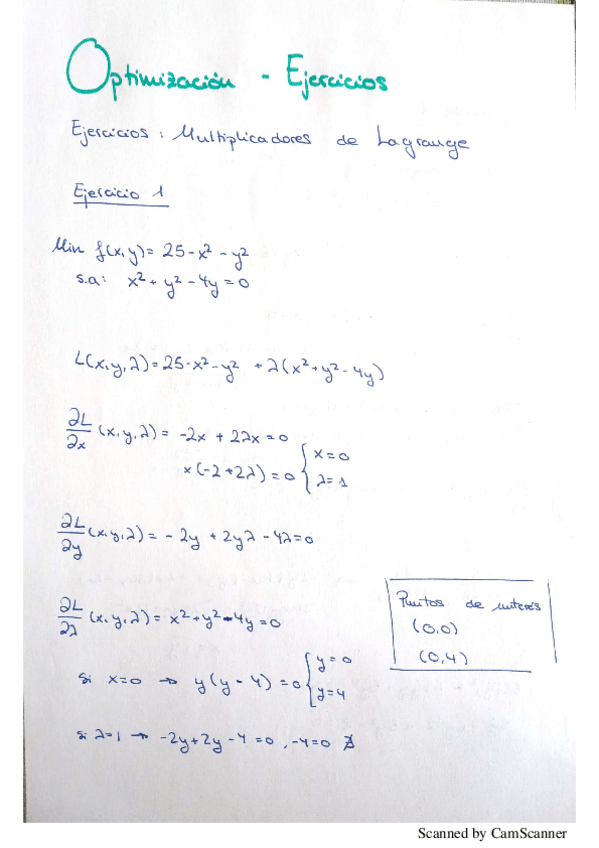 Optimización - Ejercicios
Ejercicios: Multiplicadores de Lagrange
Ejercicio 1
Min f(x,y)= 25-x² -y²
s.a: x²+y²-4y=0
L(x,y,λ)=25-x²-y² +λ(x²+y²-4y)
∂L/∂x (x,y,λ)= -2x + 2λx=0
x(-2+2λ)=0 { x=0
λ=1
∂L/∂y (x,y,λ)= -2y +2yλ -4λ=0
∂L/∂λ (x,y,λ)= x²+y²-4y=0
si x=0 → y(y-4)=0 { y=0
y=4
si λ=1 → -2y+2y-4=0, -4=0 ∄
Puntos de interés
(0,0)
(0,4)
Scanned by CamScanner